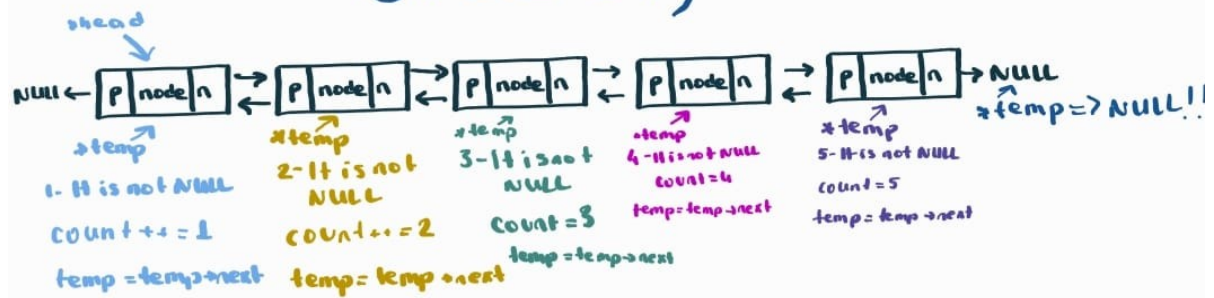 *head
NULL ← p node n p node n p node n p node n p node n → NULL
*temp => NULL!!
*temp
1- It is not NULL
count ++ = 1
temp = temp→next
*temp
2- It is not
NULL
count ++ = 2
temp = temp →next
*temp
3- It is not
NULL
count = 3
temp = temp→next
*temp
4- It is not NULL
count = 4
temp=temp→next
*temp
5- It is not NULL
count = 5
temp = temp →next